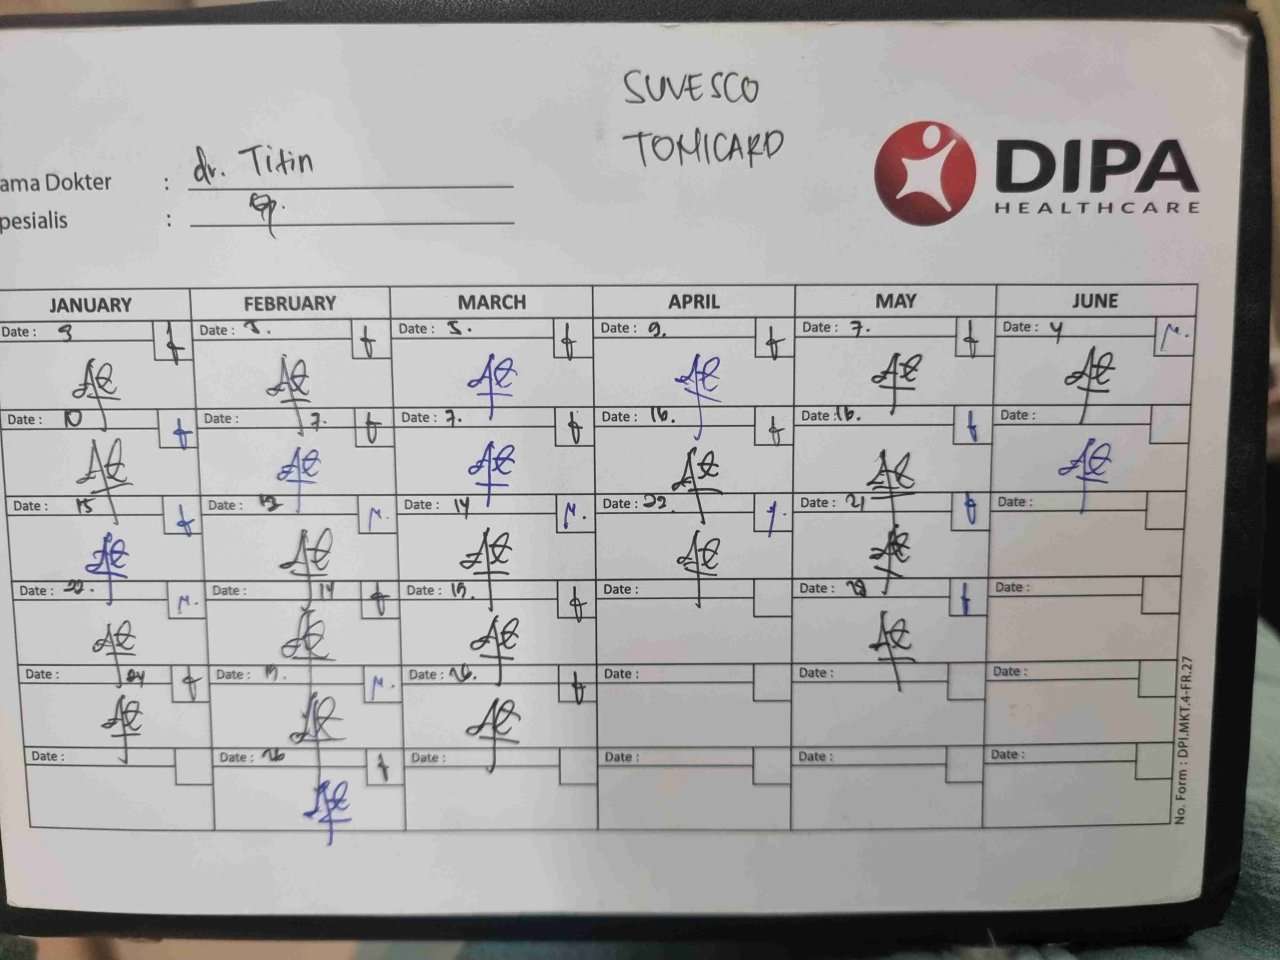 SUVESCO
TOMICARD
DIPA
HEALTHCARE
ama Dokter : dr. Titin
pesialis :
JANUARY FEBRUARY MARCH APRIL MAY JUNE
Date : 9 Date : 3. Date : 5. Date : 9. Date : 7. Date : 4
Date : 10 Date : 7. Date : 7. Date : 16. Date : 16. Date :
Date : 15 Date : 12 Date : 14 Date : 22. Date : 21 Date :
Date : 22. Date : 14 Date : 19. Date : Date : 28 Date :
Date : 24 Date : 19. Date : 26. Date : Date : Date :
Date : Date : 26 Date : Date : Date : Date :
No. Form : DPI.MKT.4-FR.27